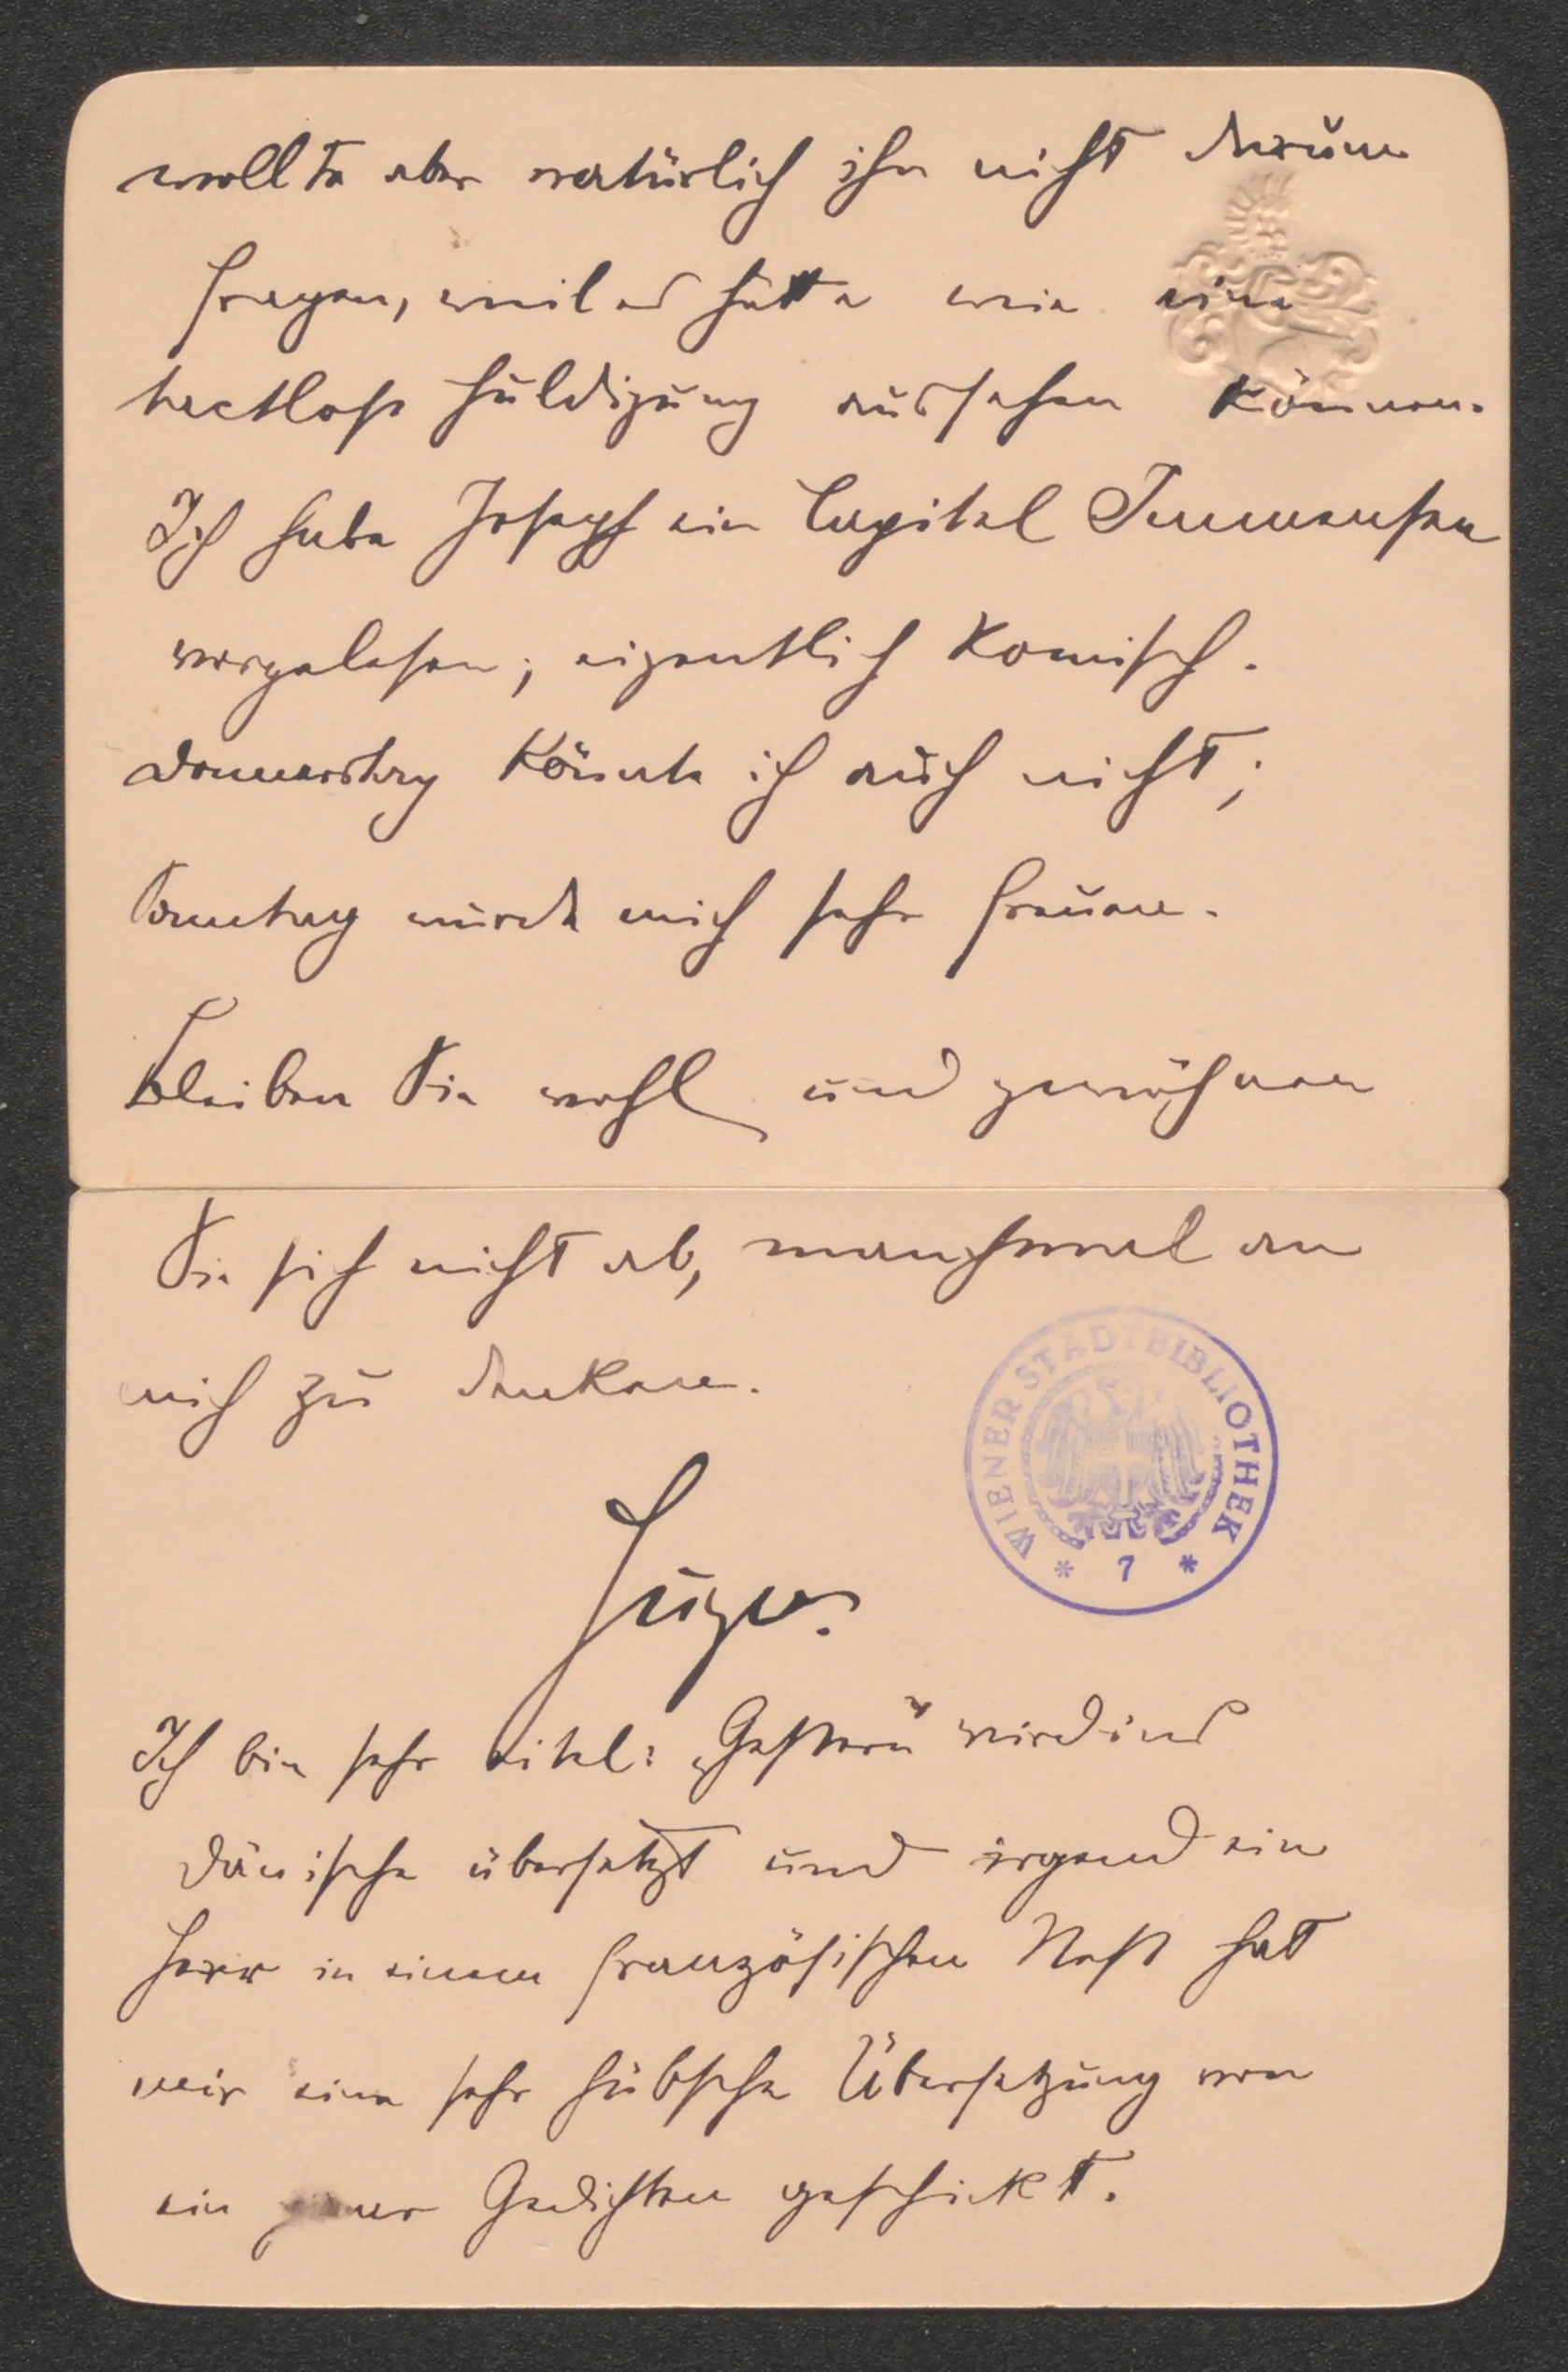 wollte aber natürlich ihn nicht darum
fragen, weil es hätte wie eine
tactlose Huldigung aussehen können.
Ich habe Joseph ein Capitel Tannhäuser
vorgelesen; eigentlich komisch.
Donnerstag könnte ich auch nicht;
Sonntag würde mich sehr freuen.
Bleiben Sie wohl und gewöhnen
Sie sich nicht ab, manchmal an
mich zu denken.
WIENER STADTBIBLIOTHEK
* 7 *
Hugo.
Ich bin sehr eitel: „Gestern" wird ins
dänische übersetzt und irgend ein
Herr in einem französischen Nest hat
mir eine sehr hübsche Übersetzung von
ein paar Gedichten geschickt.